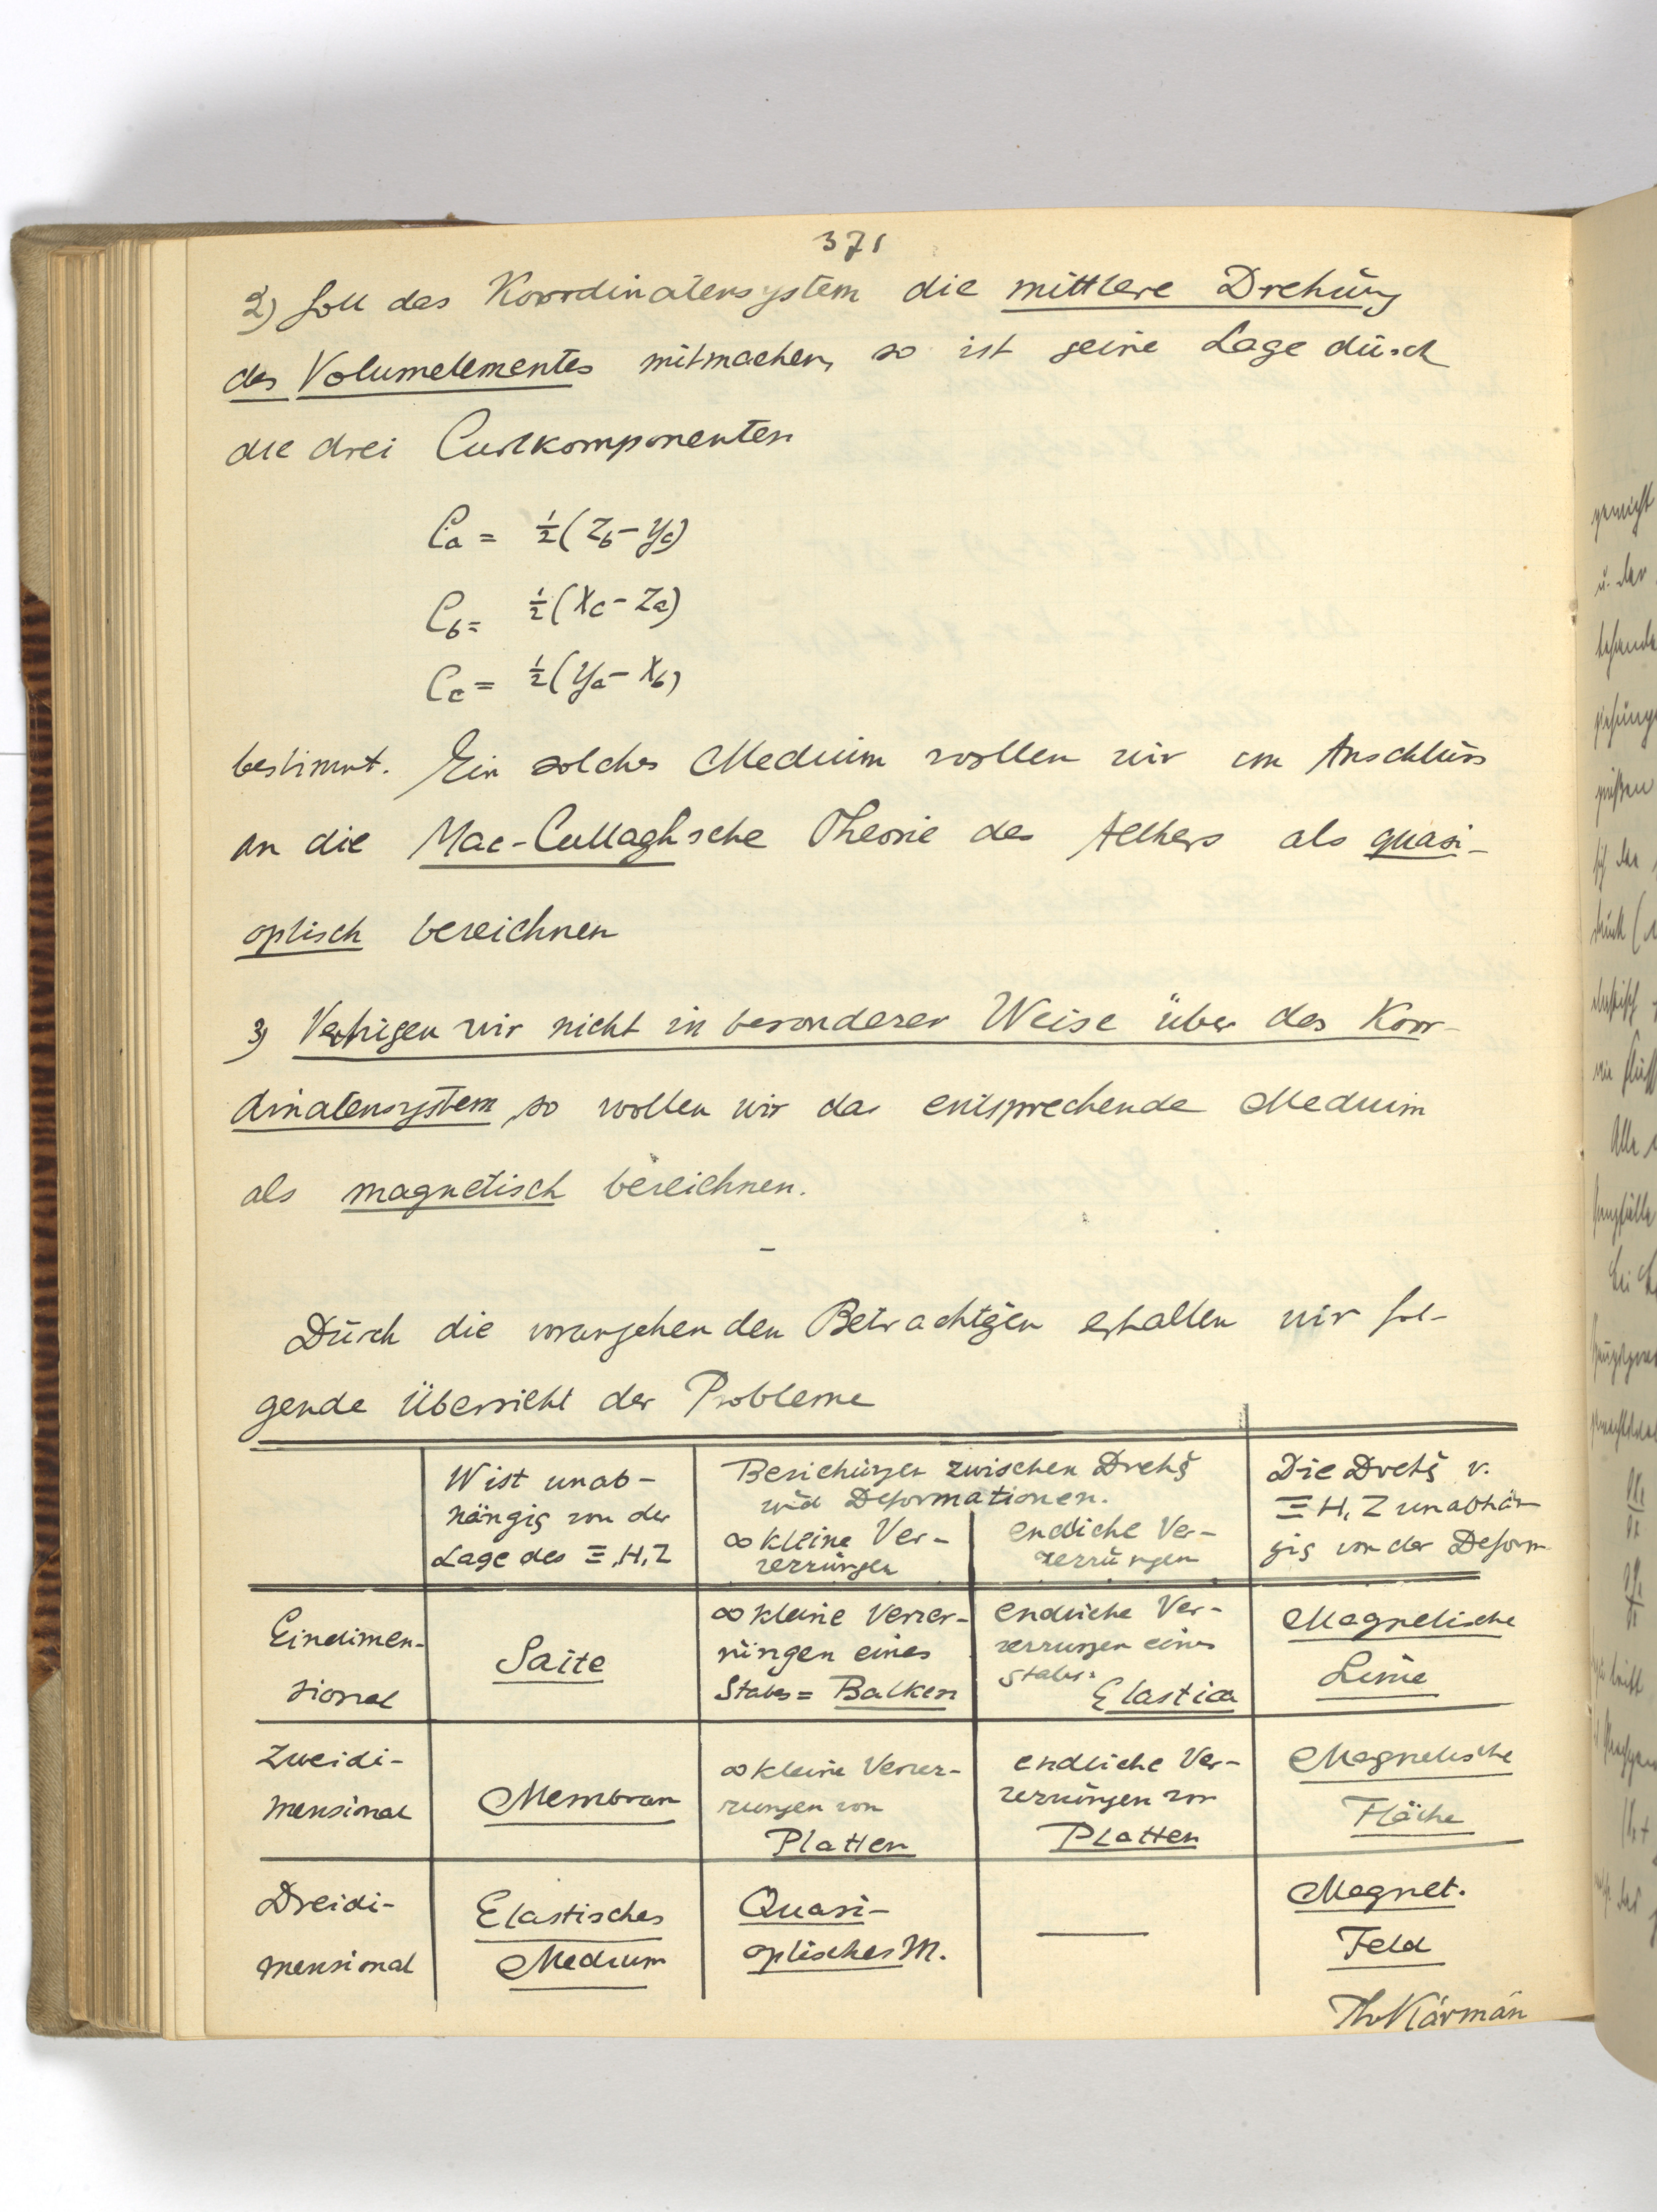 371
2) Soll das Koordinatensystem die mittlere Drehung
des Volumelementes mitmachen, so ist seine Lage durch
die drei Curlkomponenten
C_a = ½(z_b − y_c)
C_b = ½(x_c − z_a)
C_c = ½(y_a − x_b)
bestimmt. Ein solches Medium wollen wir im Anschluss
an die Mac-Cullaghsche Theorie des Aethers als quasi-
optisch bezeichnen
3) Verfügen wir nicht in besonderer Weise über das Koor-
dinatensystem, so wollen wir das entsprechende Medium
als magnetisch bezeichnen.
Durch die vorangehenden Betrachtgen erhalten wir fol-
gende Übersicht der Probleme
W ist unab-
hängig von der
Lage des Ξ, H, Z
Beziehungen zwischen Drehg
und Deformationen.
∞ kleine Ver-
zerrungen
endliche Ver-
zerrungen
Die Drehg v.
Ξ H, Z unabhän
gig von der Deform
Eindimen-
sional
Saite
∞ kleine Verzer-
rungen eines
Stabes = Balken
endliche Ver-
zerrungen eines
Stabes:
Elastica
Magnetische
Linie
Zweidi-
mensional
Membran
∞ kleine Verzer-
rungen von
Platten
endliche Ver-
zerrungen von
Platten
Magnetische
Fläche
Dreidi-
mensional
Elastisches
Medium
Quasi-
optisches M.
—
Magnet.
Feld
Th v Kármán